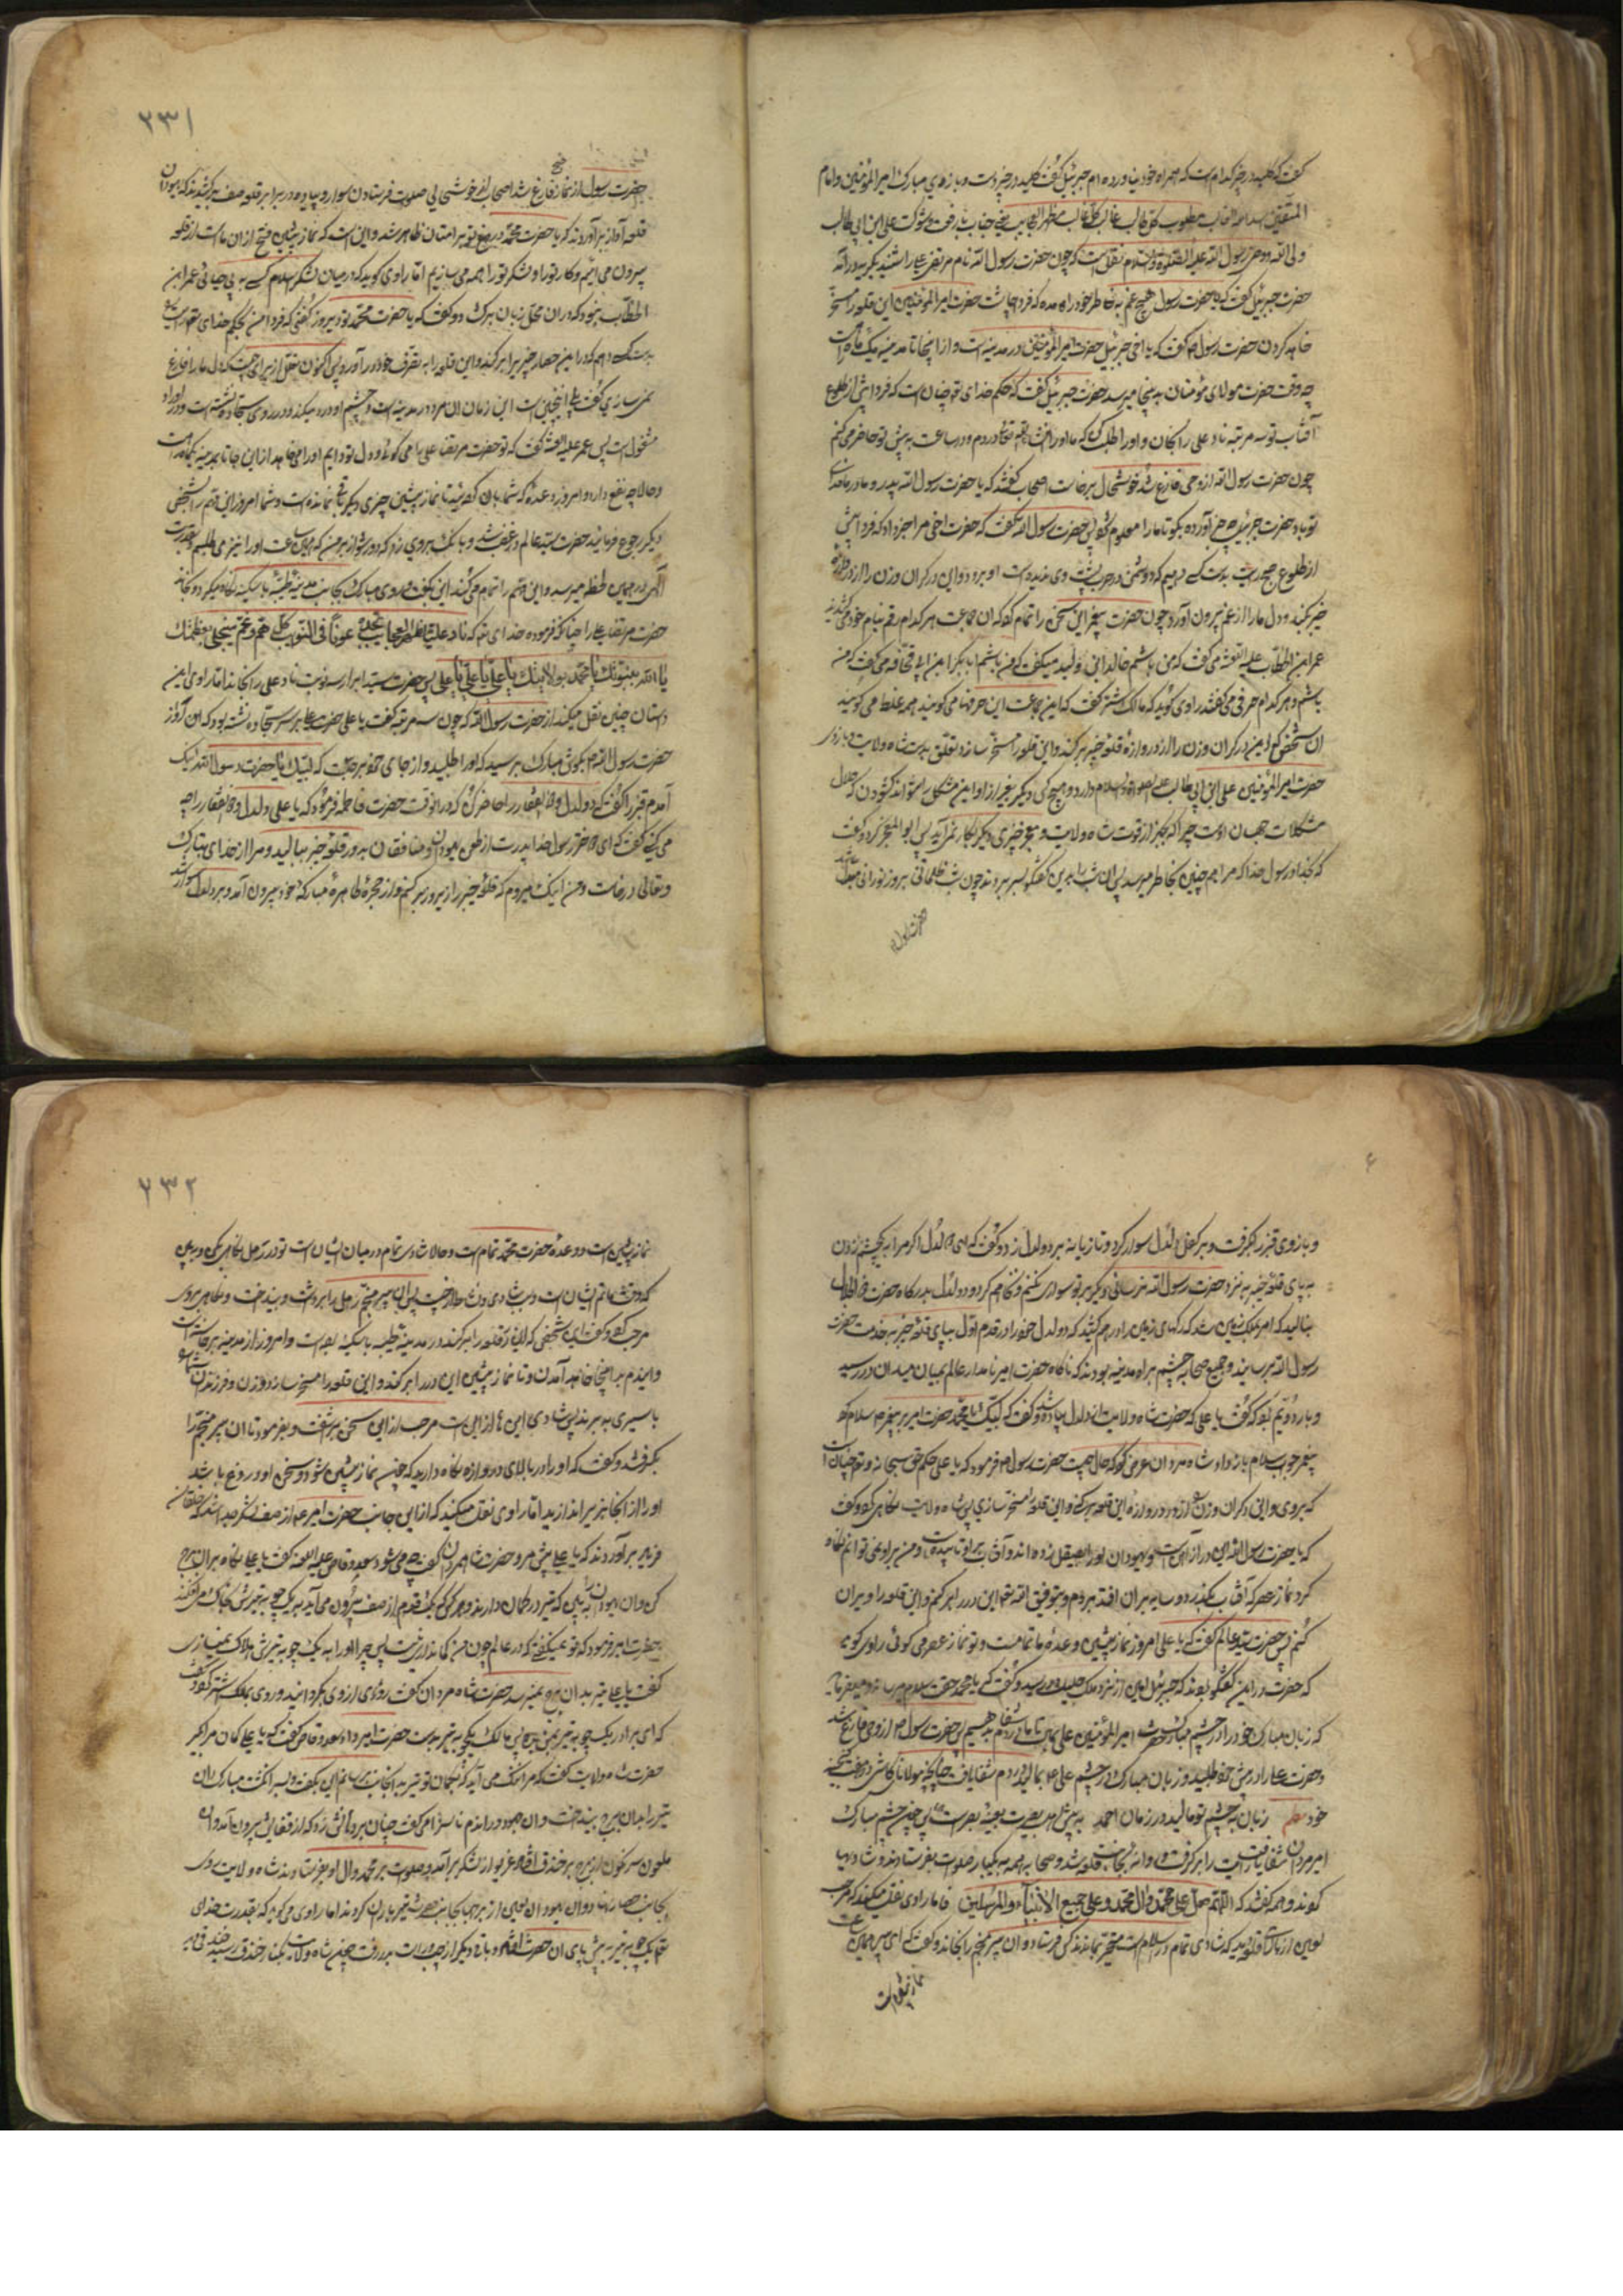 کفت که کلید در خیبر کدام است که همراه خود نیاورده ام جبرئیل کفت کلید در خیبر دست و بازوی مبارک امیر المؤمنین و امام
المتقین اسد الله الغالب مطلوب کل طالب غالب کل غالب مظهر العجایب یعنی جناب با رفعت و شوکت علی ابن ابی طالب
ولی الله و وصی رسول الله علیه الصلوة والسلام نقل است که چون حضرت رسول الله نام مرتضی علی را شنید
حضرت جبرئیل کفت که یا حضرت رسول هیچ غم به خاطر خود راه مده که فردا چاشت حضرت امیر المؤمنین این قلعه را مسخر
خواهد کردن حضرت رسول کفت که یا اخی جبرئیل حضرت امیر المؤمنین در مدینه است و از اینجا تا مدینه یک ماهه راه است
چه وقت حضرت مولای مؤمنان به اینجا میرسد حضرت جبرئیل کفت که حکم خدای چنان است که فردا پیش از طلوع
آفتاب تو سه مرتبه ناد علی را بخوان و او را طلب کن که ما او را در دم و در ساعت به پیش تو حاضر می کنم
چون حضرت رسول الله از وحی فارغ شد خوشحال برخاست اصحاب کفتند که یا حضرت رسول الله پدر و مادر ما فدای
تو باد حضرت جبرئیل چه خبر آورده بکو تا ما را معلوم شود پس حضرت رسول الله کفت که حضرت اخی مرا خبر داد که فردا پیش
از طلوع صبح
خیبر بکند و دل ما را از غم بیرون آورد چون حضرت پیغمبر این سخن را تمام کرد که آن جماعت هر کدام رقم بنام خود می کشیدند
عمر ابن الخطاب علیه اللعنه می کفت که من باشم خالد ابن ولید میکفت که من باشم ابابکر ابن ابی قحافه می کفت که من
باشم و هر کدام حرفی می کفتند راوی کوید که مالک اشتر کفت که این جماعت این حرفها می کویند همه غلط می کویند
آن شخص که این در کران وزن را از دروازهٔ قلعه خیبر بر کند و این قلعه را مسخر سازد تعلق بدست شاه ولایت و بازوی
حضرت امیر المؤمنین علی ابن ابی طالب علیه الصلوة والسلام دارد و هیچ کس دیکر بغیر از او این مشکل را نتواند کشودن که حلال
مشکلات جهان اوست چرا که بجز از قوت شاه ولایت و معجز چیزی دیکر بکار نمی آید پس ابو المعجن کرد و کفت
که بخدا و رسول خدا که مرا هم چنین بخاطر میرسد پس آن شب را بدین کفتکو بسر بردند چون شب ظلمانی بروز نورانی مبدل شد
حضرت رسول
۲۳۱
حضرت رسول از نماز صبح فارغ شد اصحاب از خوشحالی صلوات فرستادن سوار و پیاده در برابر قلعه صف بر کشیدند که یهودان
قلعه آواز بر آوردند که یا حضرت محمد دروغ تو بر امتان ظاهر شد و این است که نماز پیشین فتح از آن ماست از قلعه
بیرون می آئیم و کار تو را و لشکر تو را همه می سازیم اما راوی کوید که در میان لشکر اسلام کسی به بی حیائی عمر ابن
الخطاب نبود که در آن محل زبان بر کشود و کفت که یا حضرت محمد تو دیروز کفتی که فردا من بحکم خدای تعالی رایت
بدست کسی دهم که در این حصار خیبر بر کند و این قلعه را به تصرف خود در آورد پس اکنون نقل از برای چیست که دل ما را فارغ
نمی سازی کفت بلی اینچنین است این زمان آن مرد در مدینه است و چشم او درد میکند و در روی سجاده نشسته است و در اوراد
مشغول است پس عمر علیه اللعنه کفت که تو حضرت مرتضی علی را می کوئی و دل تو دایم او را می خواهد از این جا تا بمدینه یکماهه راهست
و حالا چه نفع دارد و امروز وعدهٔ که شما بان کردید تا نماز پیشین چیزی دیکر باقی نمانده است و شما امروز این رقم را بشخص
دیکر رجوع فرمائید حضرت سید عالم در غضب شد و بانک بر وی زد که دور شو از بر من که همین ساعت او را نیز می طلبم بقدرت
الهی در همین لحظه میرسد و این رقم را تمام می کند این بکفت و روی مبارک بجانب مدینه طیبه با سکینه نکاه میکرد و بخواند
حضرت مرتضی علی را چنانکه فرموده خدای تعالی که ناد علیا مظهر العجایب تجده عونا لک فی النوایب کل هم و غم سینجلی بعظمتک
یا الله بنبوتک یا محمد بولایتک یا علی یا علی یا علی پس حضرت سید ابرار سه نوبت ناد علی را بخواند اما راوی این
داستان چنین نقل میکند از حضرت رسول الله که چون سه مرتبه کفت یا علی حضرت علی بر سر سجاده نشسته بود که آن آواز
حضرت رسول الله بکوش مبارکش برسید که او را طلبید و از جای خود بر جست که لبیک یا حضرت رسول الله اینک
آمدم قنبر را کفت که دولدل و ذوالفقار را حاضر کن که در آن وقت حضرت فاطمه فرمود که یا علی دولدل و ذوالفقار را چه
می کنی کفت که ای دختر رسول خدا پدرت از طعن یهودان و منافقان به در قلعه خیبر بنالید و مرا از خدای تبارک
و تعالی در خواست و من اینک میروم که قلعهٔ خیبر را زیر و زبر کنم و از حجرهٔ طاهرهٔ مبارکه خود بیرون آمد و بر دلدل سوار شد
۶
و بازوی قنبر بکرفت و بر کفل دلدل سوار کرد و تازیانه بر دولدل زد و کفت که ای دلدل اکر مرا به یک چشم زدن
به پای قلعهٔ خیبر به نزد حضرت رسول الله نرسانی دیکر بر تو سواری نکنم و نکاهم کرد و دولدل بدرکاه حضرت ذوالجلال
بنالید که امر بملک زمین شد که رکهای زمین را در هم کشید که دولدل خود را در قدم اول بپای قلعهٔ خیبر به خدمت حضرت
رسول الله برسانید و جمیع صحابه چشم براه مدینه بودند که ناکاه حضرت امیر نامدار عالم بمیان میدان در رسید
و بار دویم بود که کفت یا علی که حضرت شاه ولایت از دلدل پیاده شد و کفت که لبیک یا محمد حضرت امیر بر پیغمبر سلام کرد
پیغمبر جواب سلام باز داد شاه مردان عرض کرد که حال چیست حضرت رسول فرمود که یا علی حکم حق سبحانه و تعالی چنان است
که بروی و این در کران وزن را از دروازهٔ این قلعه بر کنی و این قلعه را مسخر سازی پس شاه ولایت نکاهی کرد و کفت
که یا حضرت رسول الله این در از آهن است و یهودان او را صیقل زده اند و آفتاب بر او تابیده است و من بر او نمی توانم نکاه
کرد نماز عصر که آفتاب بکذرد و سایه بر آن افتد بروم و بتوفیق الله تعالی این در را بر کنم و این قلعه را ویران
کنم پس حضرت سید عالم کفت که یا علی امروز نماز پیشین وعدهٔ ما تمام است و تو نماز عصر می کوئی راوی کوید
که حضرت در این کفتکو بودند که جبرئیل امین از نزد ملک جلیل در رسید و کفت که یا محمد حقت سلام میرساند و میفرماید
که زبان مبارک خود را در چشم مبارک حضرت امیر المؤمنین علی بمال تا ما در دم شفا بدهیم پس حضرت رسول از وحی فارغ شد
و حضرت علی را در پیش خود طلبید و زبان مبارک در چشم علی بمالید در دم شفا یافت چنانچه مولانا کاشی در هفت بند
خود نظم زبان به چشم تو مالید در زمان احمد چون چشم مبارک
امیر مردان شفا یافت رایت را بر کرفت و روانه بجانب قلعه شد و صحابه همه به یکبار صلوات بفرستادند و شادیها
کردند و همه کفتند که اللهم صل علی محمد و آل محمد و علی جمیع الانبیآء والمرسلین اما راوی نقل میکند که مرحب
لعین از بالای قلعه دید که شادی تمام در اسلام است متحیر بماند کس فرستاد و آن پیر منجم را بخواند و کفت که ای پیر همین
نماز پیشین است
۲۳۲
نماز پیشین است و وعدهٔ حضرت محمد تمام است و حالا شادی تمام در میان ایشان است تو در رمل نکاهی بکن و ببین
که وقت ماتم ایشان است و سبب شادی و نشاط از چیست پس آن پیر منجم رمل را برداشت و بینداخت و نکاهی بروی
مرحب کرد و کفت این شخصی که این در قلعه را بر کند در مدینه طیبه با سکینه بوده است و امروز از مدینه برخاسته است
و این دم به اینجا خواهد آمدن و تا نماز پیشین این در را بر کند و این قلعه را مسخر سازد و زن و فرزندان شما را
باسیری به برند پس شادی اینها از این است مرحب از این سخن برآشفت و بفرمود تا آن پیر منجم را
بکرفتند و کفت که او را در بالای دروازه نکاه دارید که چون نماز پیشین شود و سخن او دروغ باشد
او را از آنجا بزیر اندازید اما راوی نقل میکند که از این جانب حضرت امیر از صف لشکر جدا شد که خلقان
فریاد بر آوردند که یا علی پیش مرو حضرت شاه مردان کفت چه می شود سعد وقاص علیه اللعنه کفت یا علی نکاه بر آن برج
کن و آن یهودان را ببین که تیر در کمان دارند و هر کس که یک قدم از صف بیرون می آید به یک چوبه تیرش بخاک می افکند
حضرت امیر فرمود که تو میکفتی که در عالم چون من کماندار نیست پس چرا او را به یک چوبه تیرش هلاک نمیسازی
کفت یا علی تیر بدان برج نمیرسد حضرت شاه مردان کفت روی از وی بکردانید و روی بمالک اشتر کرد و کفت
که ای برادر یک چوبه تیر بمن ده پس مالک یکچوبه تیر بدست حضرت امیر داد سعد وقاص کفت که یا علی کمان مرا بکیر
حضرت شاه ولایت کفت که مرا ننک می آید که بکمان تو تیر به آنجانب برسانم این بکفت و بسر انکشت مبارک آن
تیر را بدان برج بینداخت و آن جهود در آن دم ناسزا می کفت چنان بر دهانش زد که از قفایش بیرون آمد و آن
ملعون سرنکون از برج بر خندق افتاد غریو از لشکر بر آمد و صلوات بر محمد و آل او بفرستادند شاه ولایت روی
بجانب حصار نهاد و آن یهودان لعین از برجها بجانب حضرت تیر باران کردند اما راوی می کوید که بقدرت خدای
تعالی یک چوبه تیر به پیش پای آن حضرت افتاد و باقی دیکر از چپ و راست بدر رفت چون شاه ولایت بکنار خندق رسید